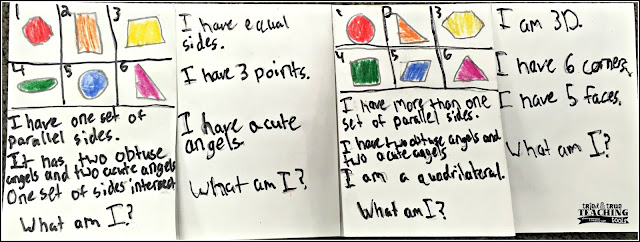 1 2 3
4 5 6
I have one set of
parallel sides.
It has two obtuse
angels and two acute angels
One set of sides intersect
What am I?
I have equal
sides.
I have 3 points.
I have acute
angels.
What am I?
1 2 3
4 5 6
I have more than one
set of parallel sides.
I have two obtuse angels and
two acute angels
I am a quadrilateral.
What am I?
I am 3D.
I have 6 corners.
I have 5 faces.
What am I?
tried & true
TEACHING
tools